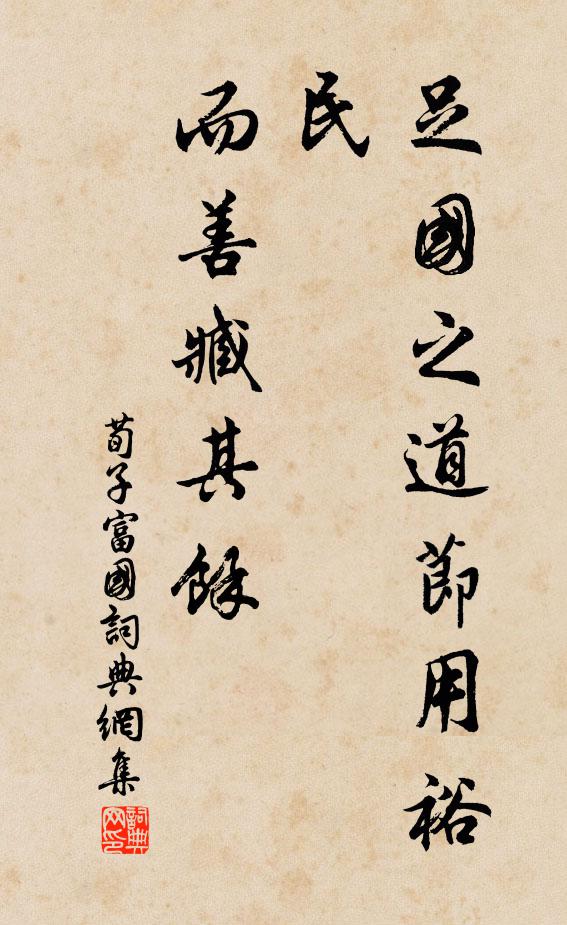 足國之道節用裕
民
而善臧其餘
荀子富國詞典網集
詞典
网印